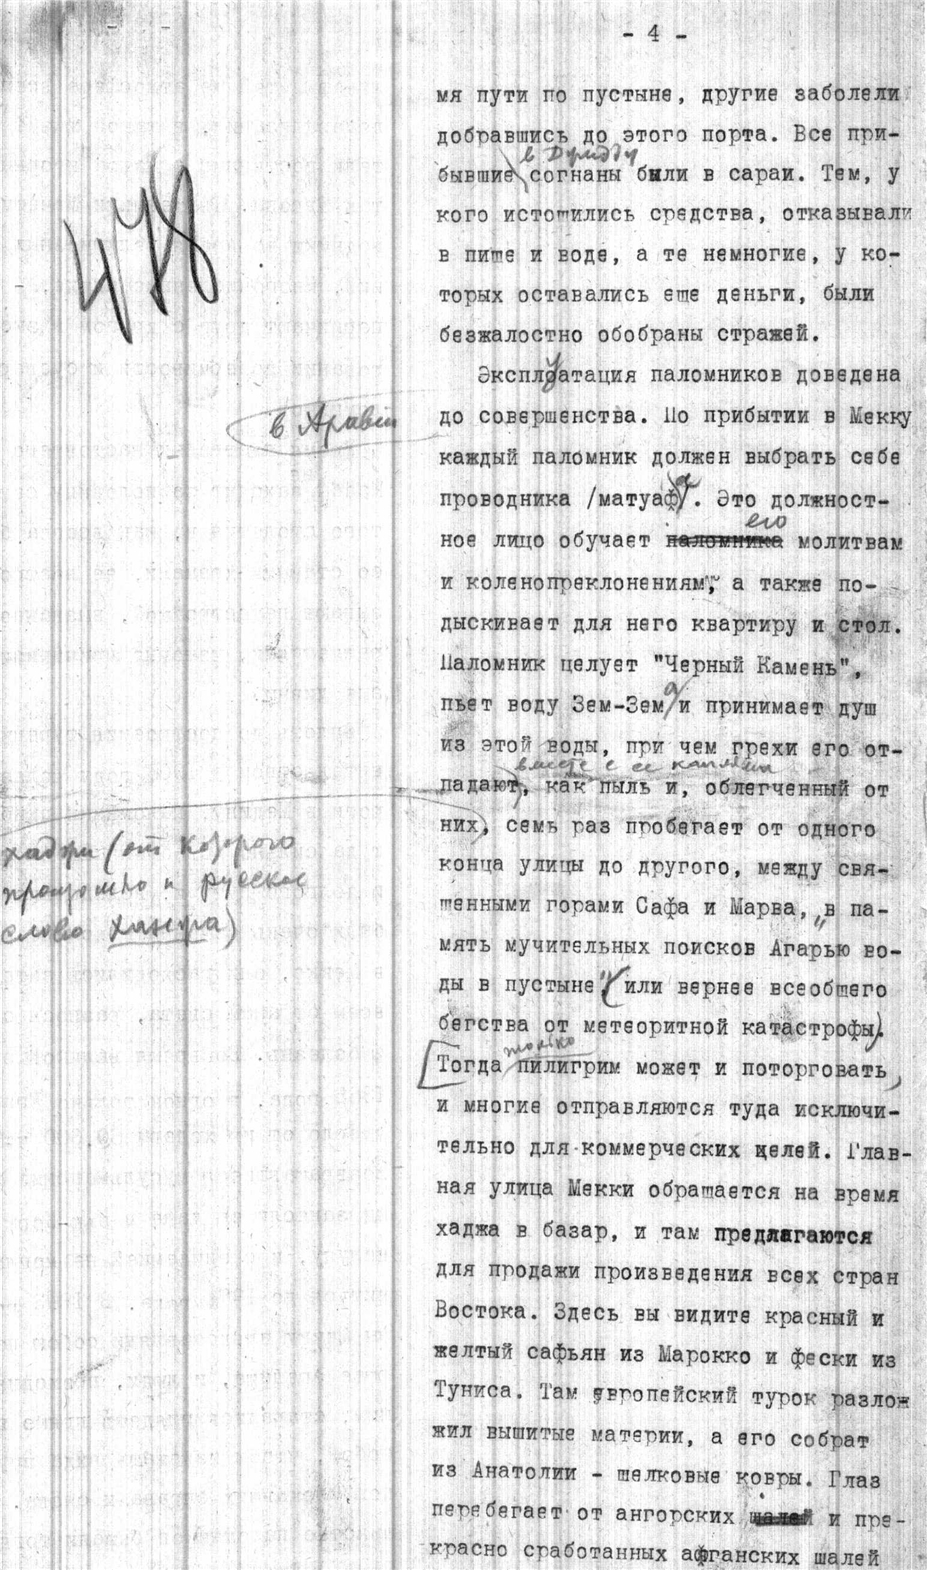 - 4 -
мя пути по пустыне, другие заболели
добравшись до этого порта. Все при-
в Джидду
бывшие согнаны были в сараи. Тем, у
478
кого истощились средства, отказывали
в пище и воде, а те немногие, у ко-
торых оставались еще деньги, были
безжалостно обобраны стражей.
Эксплуатация паломников доведена
в Аравии
до совершенства. По прибытии в Мекку
каждый паломник должен выбрать себе
проводника /матуафа. Это должност-
его
ное лицо обучает паломника молитвам
и коленопреклонениям, а также по-
дыскивает для него квартиру и стол.
Паломник целует "Черный Камень",
пьет воду Зем-Зема и принимает душ
из этой воды, при чем грехи его от-
вместе с ее каплями
падают, как пыль и, облегченный от
них, семь раз пробегает от одного
хаджи (от которого
произошло и русское
слово ханжа)
конца улицы до другого, между свя-
щенными горами Сафа и Марва, „в па-
мять мучительных поисков Агарью во-
ды в пустыне" (или вернее всеобщего
бегства от метеоритной катастрофы).
только
[Тогда пилигрим может и поторговать,
и многие отправляются туда исключи-
тельно для коммерческих целей. Глав-
ная улица Мекки обращается на время
хаджа в базар, и там предлагаются
для продажи произведения всех стран
Востока. Здесь вы видите красный и
желтый сафьян из Марокко и фески из
Туниса. Там европейский турок разлож
жил вышитые материи, а его собрат
из Анатолии - шелковые ковры. Глаз
перебегает от ангорских шалей и пре-
красно сработанных афганских шалей